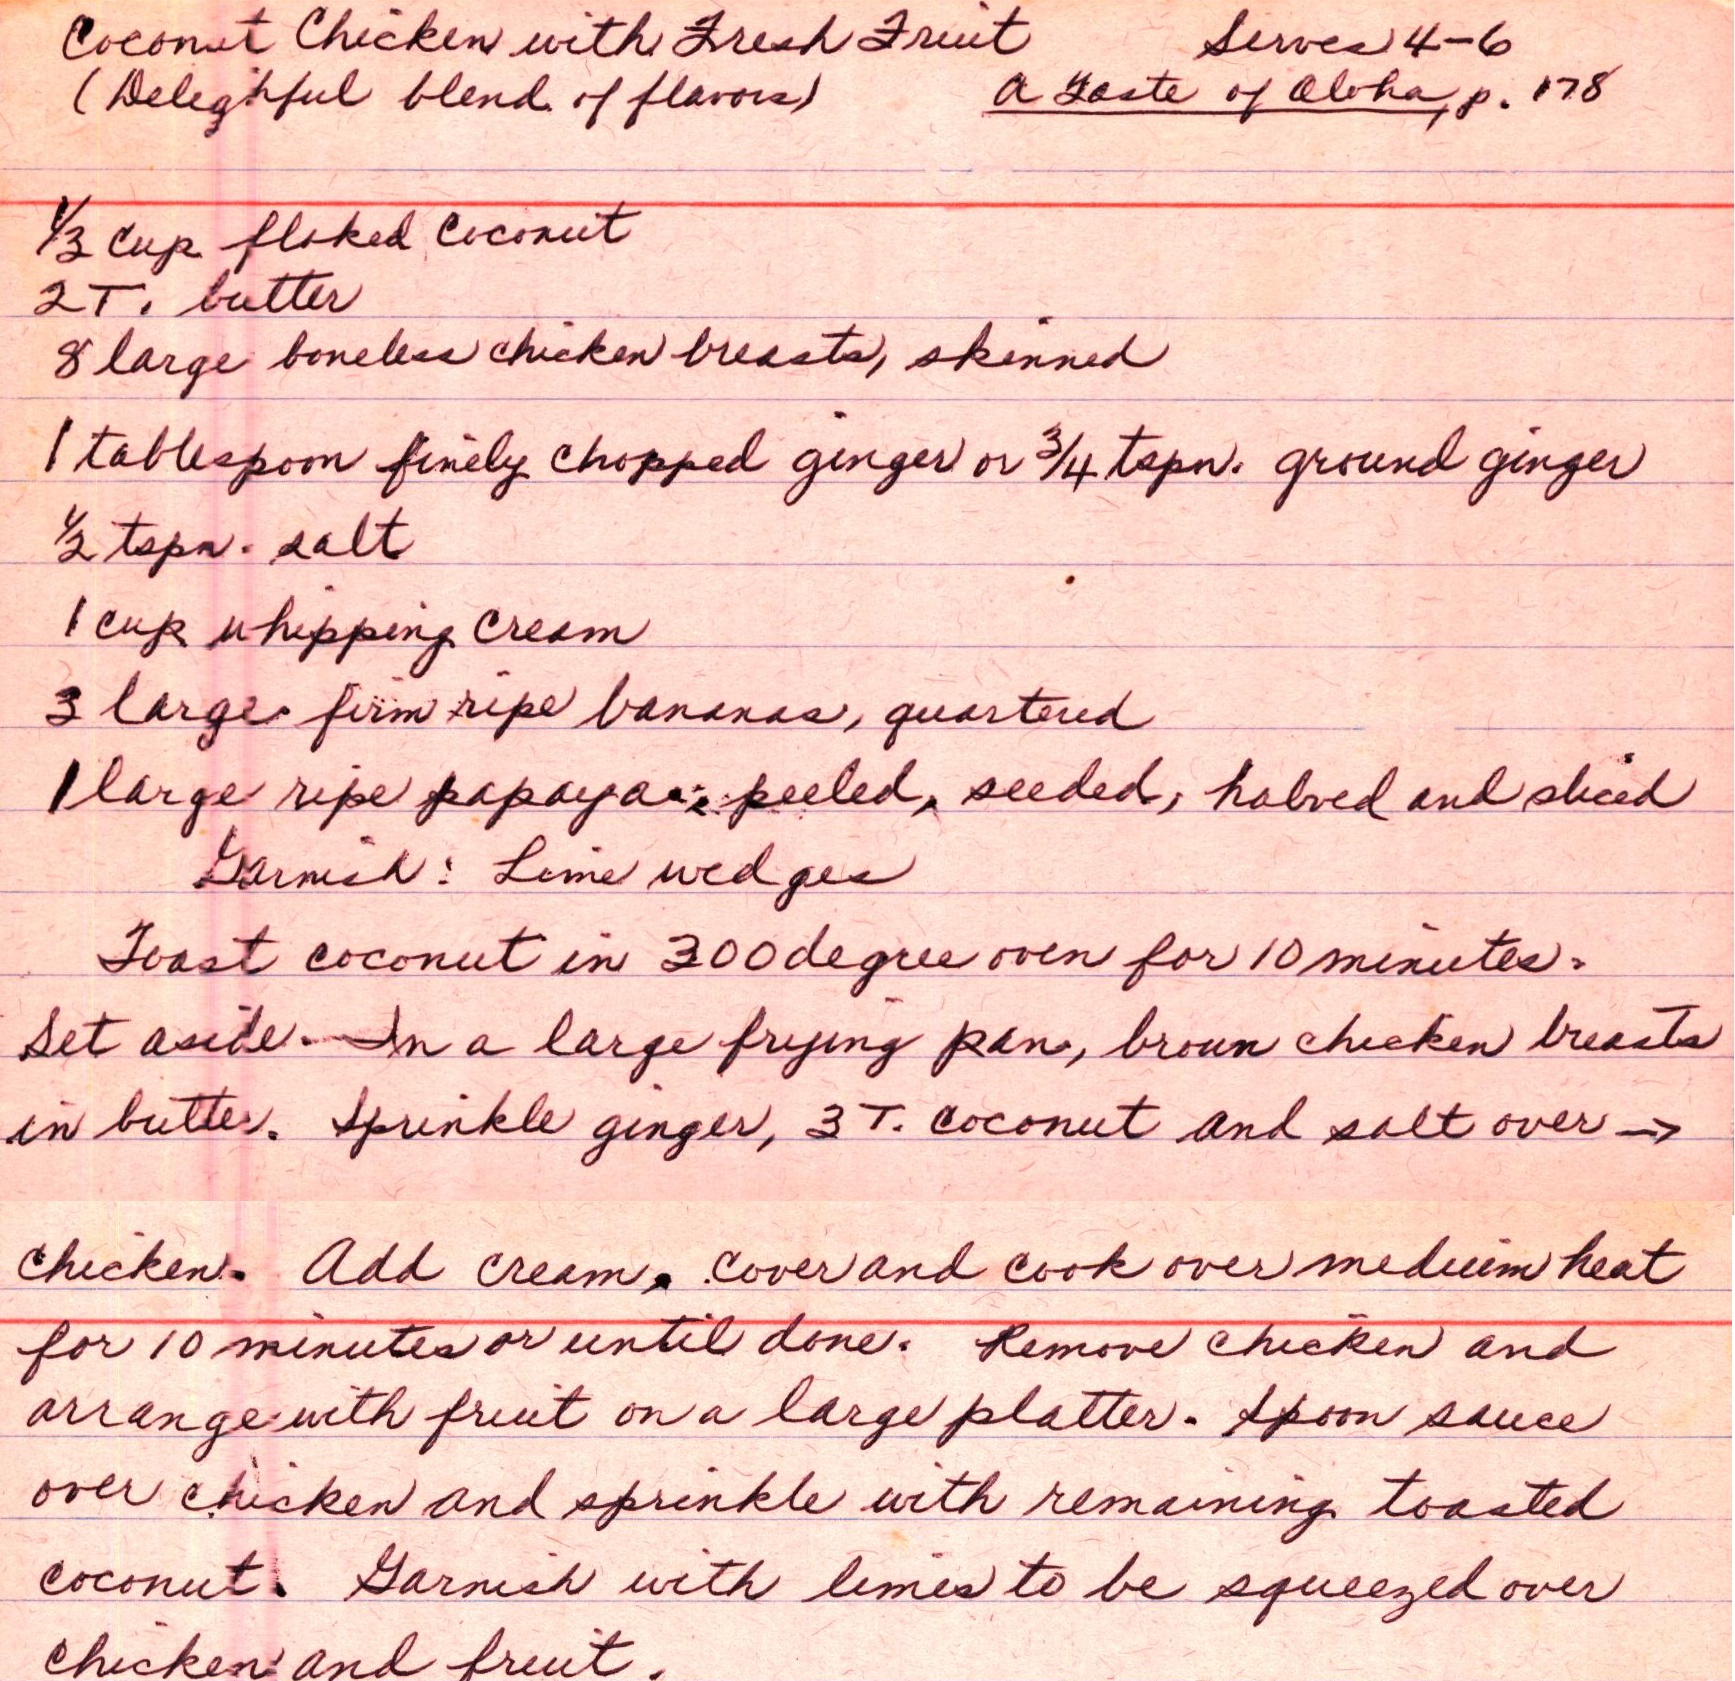 Coconut Chicken with Fresh Fruit Serves 4-6
(Delegihful blend of flavors) A Taste of Aloha, p. 178
1/3 cup flaked coconut
2 T. butter
8 large boneless chicken breasts, skinned
1 tablespoon finely chopped ginger or 3/4 tspn. ground ginger
1/2 tspn. salt
1 cup whipping cream
3 large firm ripe bananas, quartered
1 large ripe papaya, peeled, seeded, halved and sliced
Garnish: Lime wedges
Toast coconut in 300 degree oven for 10 minutes.
Set aside. In a large frying pan, brown chicken breasts
in butter. Sprinkle ginger, 3 T. coconut and salt over →
chicken. Add cream, cover and cook over medium heat
for 10 minutes or until done. Remove chicken and
arrange with fruit on a large platter. Spoon sauce
over chicken and sprinkle with remaining toasted
coconut. Garnish with limes to be squeezed over
chicken and fruit.